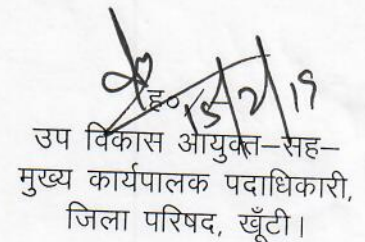 ह० 15/2/19
उप विकास आयुक्त–सह–
मुख्य कार्यपालक पदाधिकारी,
जिला परिषद, खूँटी।